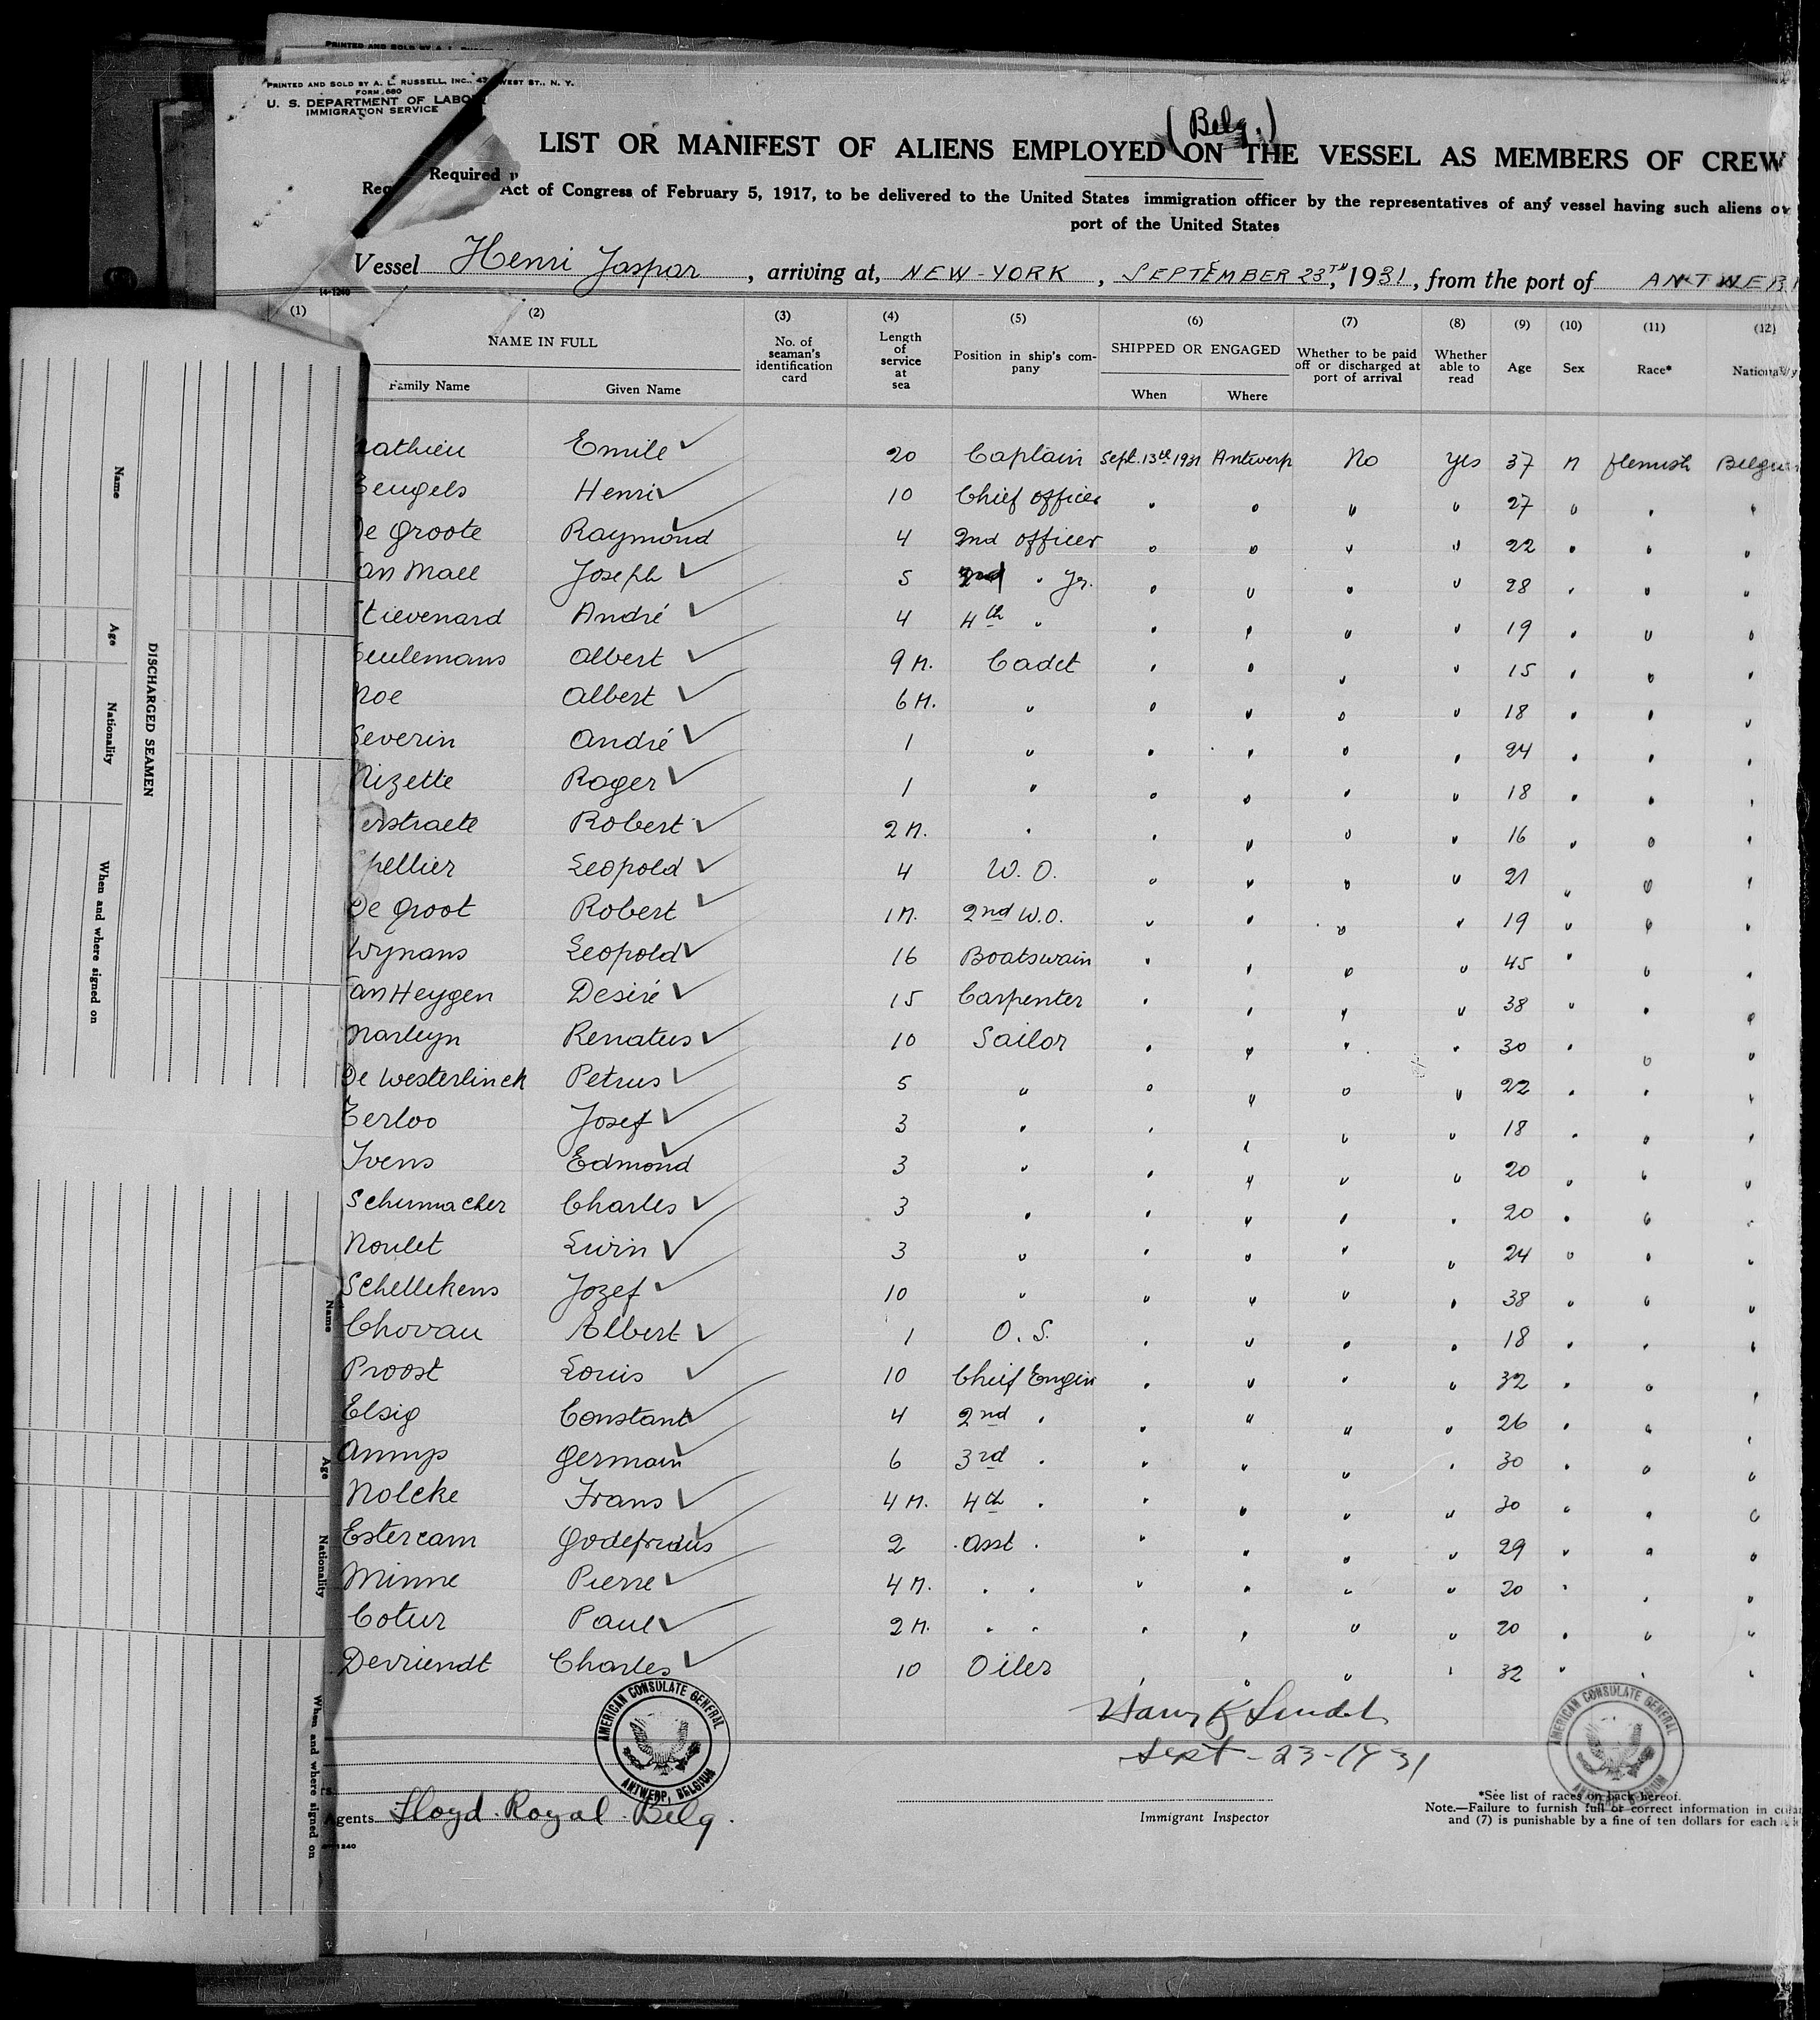 PRINTED AND SOLD BY A. L.
PRINTED AND SOLD BY A. L. RUSSELL, INC., WEST ST., N. Y.
FORM 680
U. S. DEPARTMENT OF LABO
IMMIGRATION SERVICE
(Belg.)
LIST OR MANIFEST OF ALIENS EMPLOYED ON THE VESSEL AS MEMBERS OF CREW
Required Act of Congress of February 5, 1917, to be delivered to the United States immigration officer by the representatives of any vessel having such aliens
port of the United States
Vessel Henri Jaspar, arriving at, NEW-YORK, SEPTEMBER 23TH, 1931, from the port of ANTWER
14-1240
(1) (2) (3) (4) (5) (6) (7) (8) (9) (10) (11) (12)
NAME IN FULL No. of seaman's identification card Length of service at sea Position in ship's company SHIPPED OR ENGAGED Whether to be paid off or discharged at port of arrival Whether able to read Age Sex Race* Nationality
Family Name Given Name When Where
athieu Emile ✓ 20 Captain Sept. 13th 1931 Antwerp No Yes 37 M flemish Belgium
Beugels Henri ✓ 10 Chief officer " " " " 27 " " "
De Groote Raymond ✓ 4 2nd officer " " " " 22 " " "
an Mall Joseph ✓ 5 2nd " Jr. " " " " 28 " " "
tievenard André ✓ 4 4th " " " " " 19 " " "
eulemans Albert ✓ 9 M. Cadet " " " " 15 " " "
Noe Albert ✓ 6 M. " " " " " 18 " " "
Severin André ✓ 1 " " " " " 24 " " "
Nizette Roger ✓ 1 " " " " " 18 " " "
erstraete Robert ✓ 2 M. " " " " " 16 " " "
pellier Leopold ✓ 4 W. O. " " " " 21 " " "
De Groot Robert ✓ 1 M. 2nd W.O. " " " " 19 " " "
Wynans Leopold ✓ 16 Boatswain " " " " 45 " " "
an Heygen Desiré ✓ 15 Carpenter " " " " 38 " " "
Marleyn Renatus ✓ 10 Sailor " " " " 30 " " "
De Westerlinck Petrus ✓ 5 " " " " " 22 " " "
Terloo Josef ✓ 3 " " " " " 18 " " "
Ivens Edmond ✓ 3 " " " " " 20 " " "
Schumacher Charles ✓ 3 " " " " " 20 " " "
Noulet Livin ✓ 3 " " " " " 24 " " "
Schellekens Jozef ✓ 10 " " " " " 38 " " "
Chovau Albert ✓ 1 O. S. " " " " 18 " " "
Proost Louis ✓ 10 Chief Engin " " " " 32 " " "
Elsig Constant ✓ 4 2nd " " " " " 26 " " "
Annys Germain ✓ 6 3rd " " " " " 30 " " "
Nolcke Frans ✓ 4 M. 4th " " " " " 30 " " "
Estercam Godefridus ✓ 2 Asst " " " " " 29 " " "
Minne Pierre ✓ 4 M. " " " " " " 20 " " "
Cotur Paul ✓ 2 M. " " " " " " 20 " " "
Devriendt Charles ✓ 10 Oiler " " " " 32 " " "
AMERICAN CONSULATE GENERAL
ANTWERP, BELGIUM
Sept-23-1931
AMERICAN CONSULATE GENERAL
Agents Lloyd Royal Belg.
Immigrant Inspector
*See list of races on back hereof.
Note.—Failure to furnish full or correct information in
and (7) is punishable by a fine of ten dollars for each
DISCHARGED SEAMEN
Name
Age
Nationality
When and where signed on
Name
Age
Nationality
When and where signed on